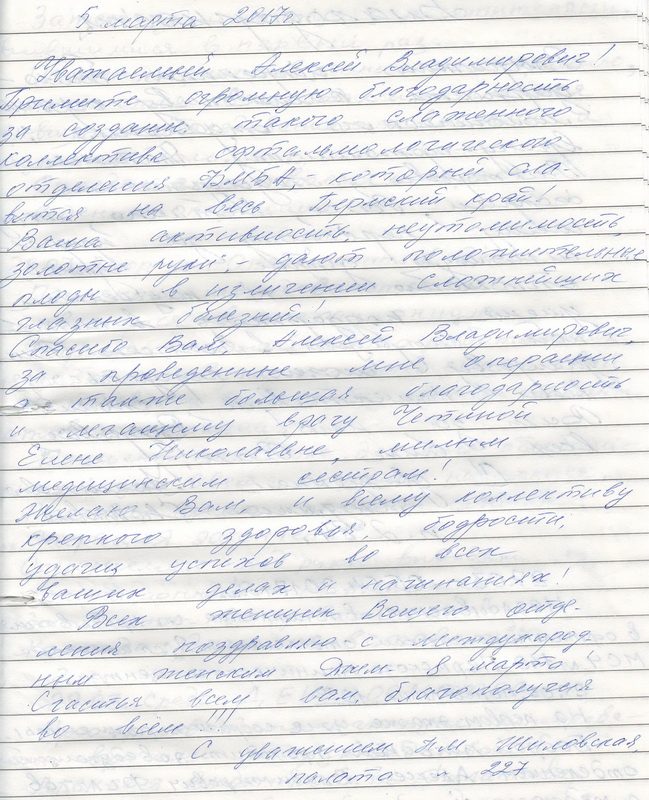 5 марта 2017г.
Уважаемый Алексей Владимирович!
Примите огромную благодарность
за создание такого слаженного
коллектива офтальмологического
отделения ФМБА, - который сла-
вится на весь Пермский край!
Ваша активность, неутомимость,
золотые руки, - дают положительные
плоды в изличении сложнейших
глазных болезний!
Спасибо Вам, Алексей Владимирович,
за проведенные мне операции,
а также большая благодарность
и лечащему врачу
Елене Николаевне, милым
медицинским сёстрам!
Желаю Вам, и всему коллективу
крепкого здоровья, бодрости,
удачи, успехов во всех
ваших делах и начинаниях!
Всех женщин Вашего отде-
ления поздравляю с международ-
ным женским Днём - 8 марта!
Счастья всем вам, благополучия
во всём!!!
С уважением Н.М. Шиловская,
палата № 227